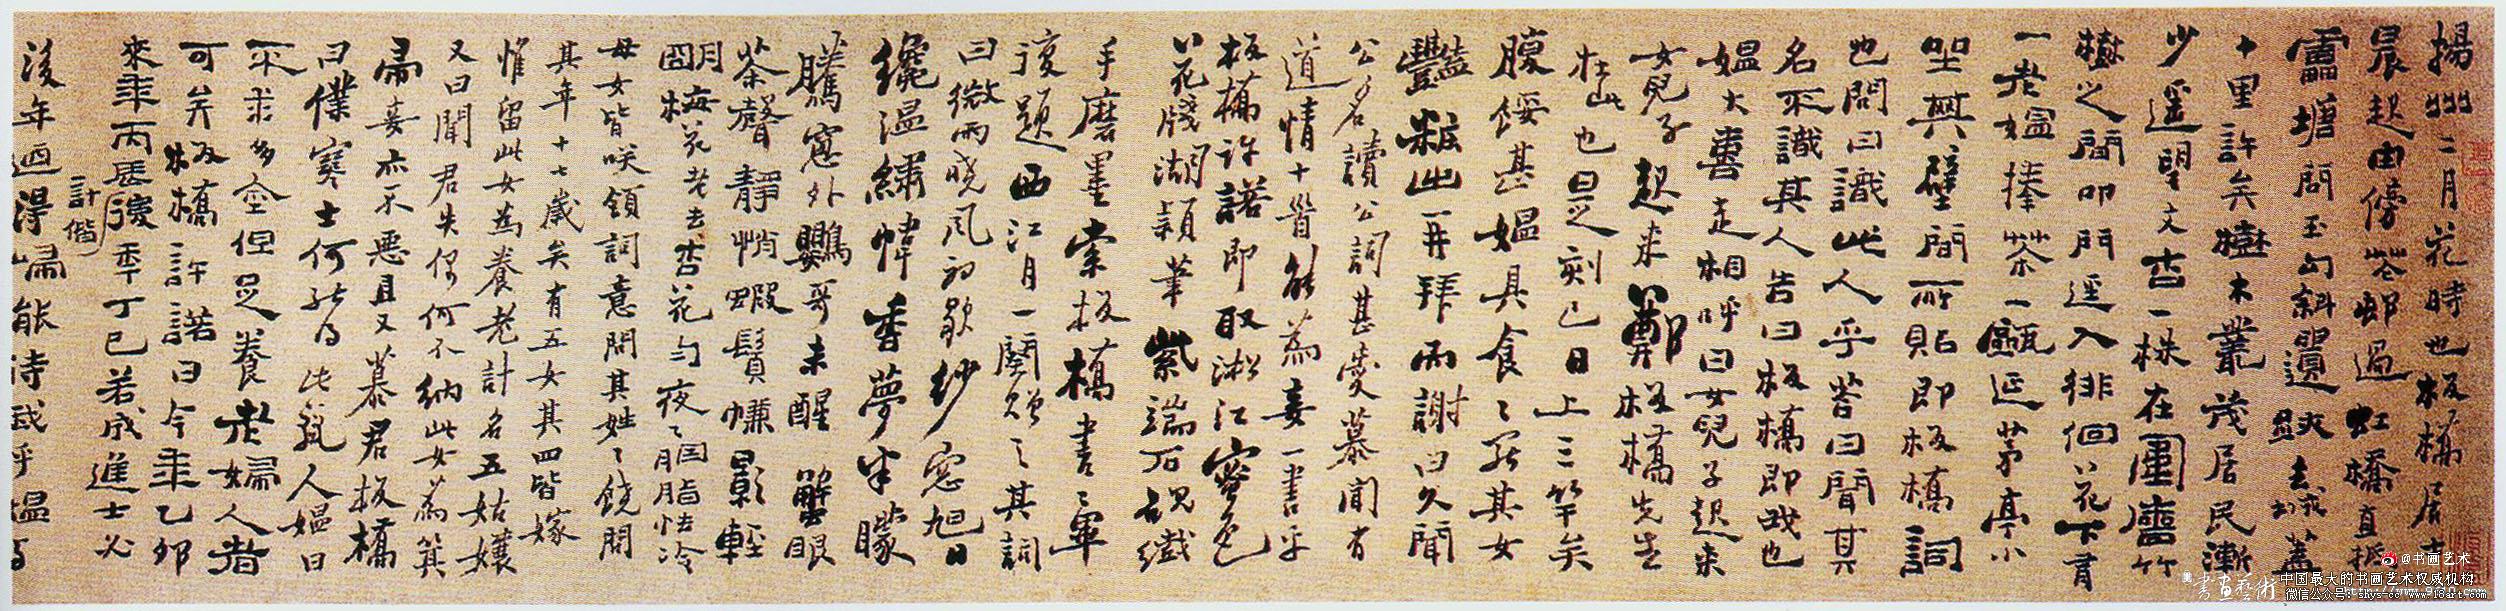 揚州二月花時也板橋居士
晨起由傍花邨過虹橋直抵
雷塘問玉勾斜遺跡去城蓋
十里許矣樹木叢茂居民漸
少遥望文杏一株在圍牆竹
樹之間叩門逕入徘徊花下有
一老媼捧茶一甌延茅亭小
坐其壁間所貼即板橋詞
也問曰識此人乎荅曰聞其
名不識其人告曰板橋即我也
媼大喜走相呼曰女兒子起來
女兒子起來鄭板橋先生
在此也是刻已日上三竿矣
腹餒甚媼具食〻罷其女
豔粧出再拜而謝曰久聞
公名讀公詞甚愛慕聞有
道情十首能為妾一書乎
板橋許諾即取淞江蜜色
花牋湖穎筆紫端石硯纖
手磨墨索板橋書〻畢
復題西江月一闋贈之其詞
曰微雨曉風初歇紗窗旭日
纔温繡幃香夢半朦
騰窗外鸚哥未醒 蟹眼
茶聲靜悄蝦鬚簾影輕
明梅花老去杏花勻夜〻胭脂怯冷
母女皆咲領詞意問其姓〻饒問
其年十七歲矣有五女其四皆嫁
惟留此女為養老計名五姑娘
又曰聞君失偶何不納此女為箕
帚妾亦不惡且又慕君板橋
曰僕寒士何能得此麗人媼曰
不求多金但足養老婦人者
可矣板橋許諾曰今年乙卯
來年丙辰計偕後年丁巳若成進士必
後年迺得歸能待我乎媼曰
@书画艺术
書畫藝術
中国最大的书画艺术权威机构